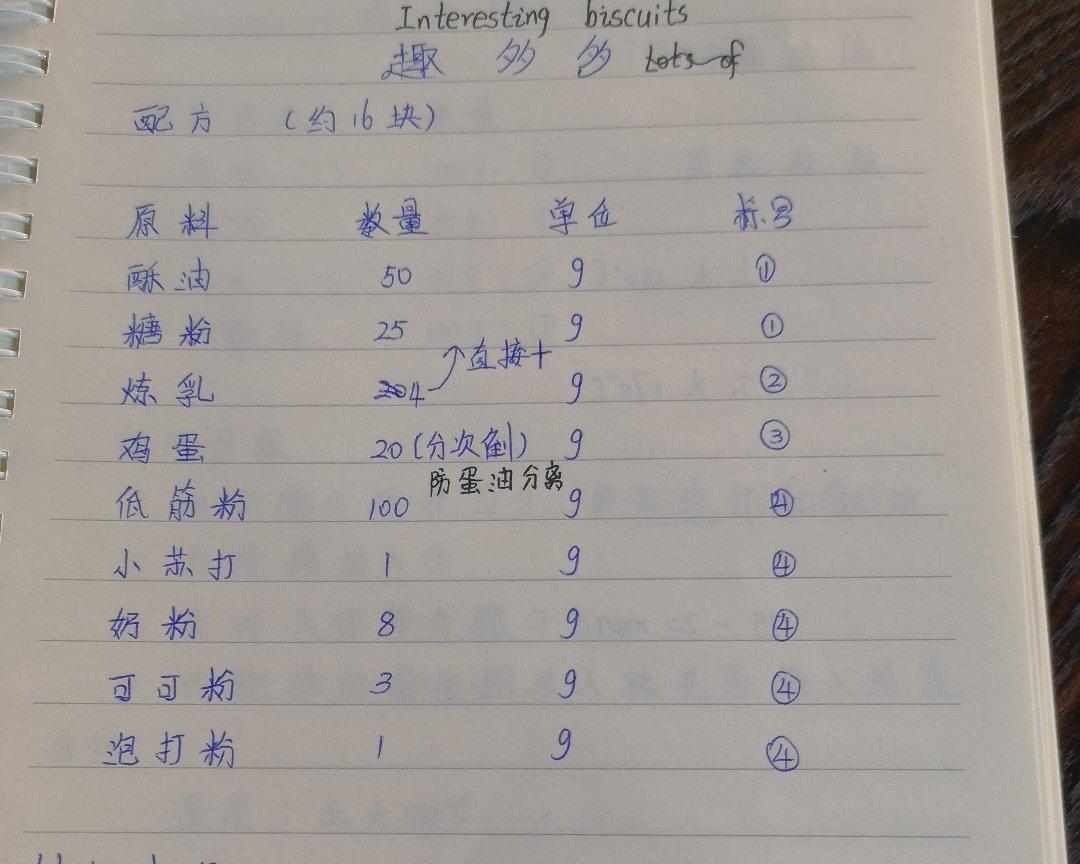 Interesting biscuits
趣 多 多 Lots of
配方 (约16块)
原料 数量 单位 标号
酥油 50 g ①
糖粉 25 g ①
直接+
炼乳 4 g ②
鸡蛋 20(分次倒) g ③
防蛋油分离
低筋粉 100 g ④
小苏打 1 g ④
奶粉 8 g ④
可可粉 3 g ④
泡打粉 1 g ④